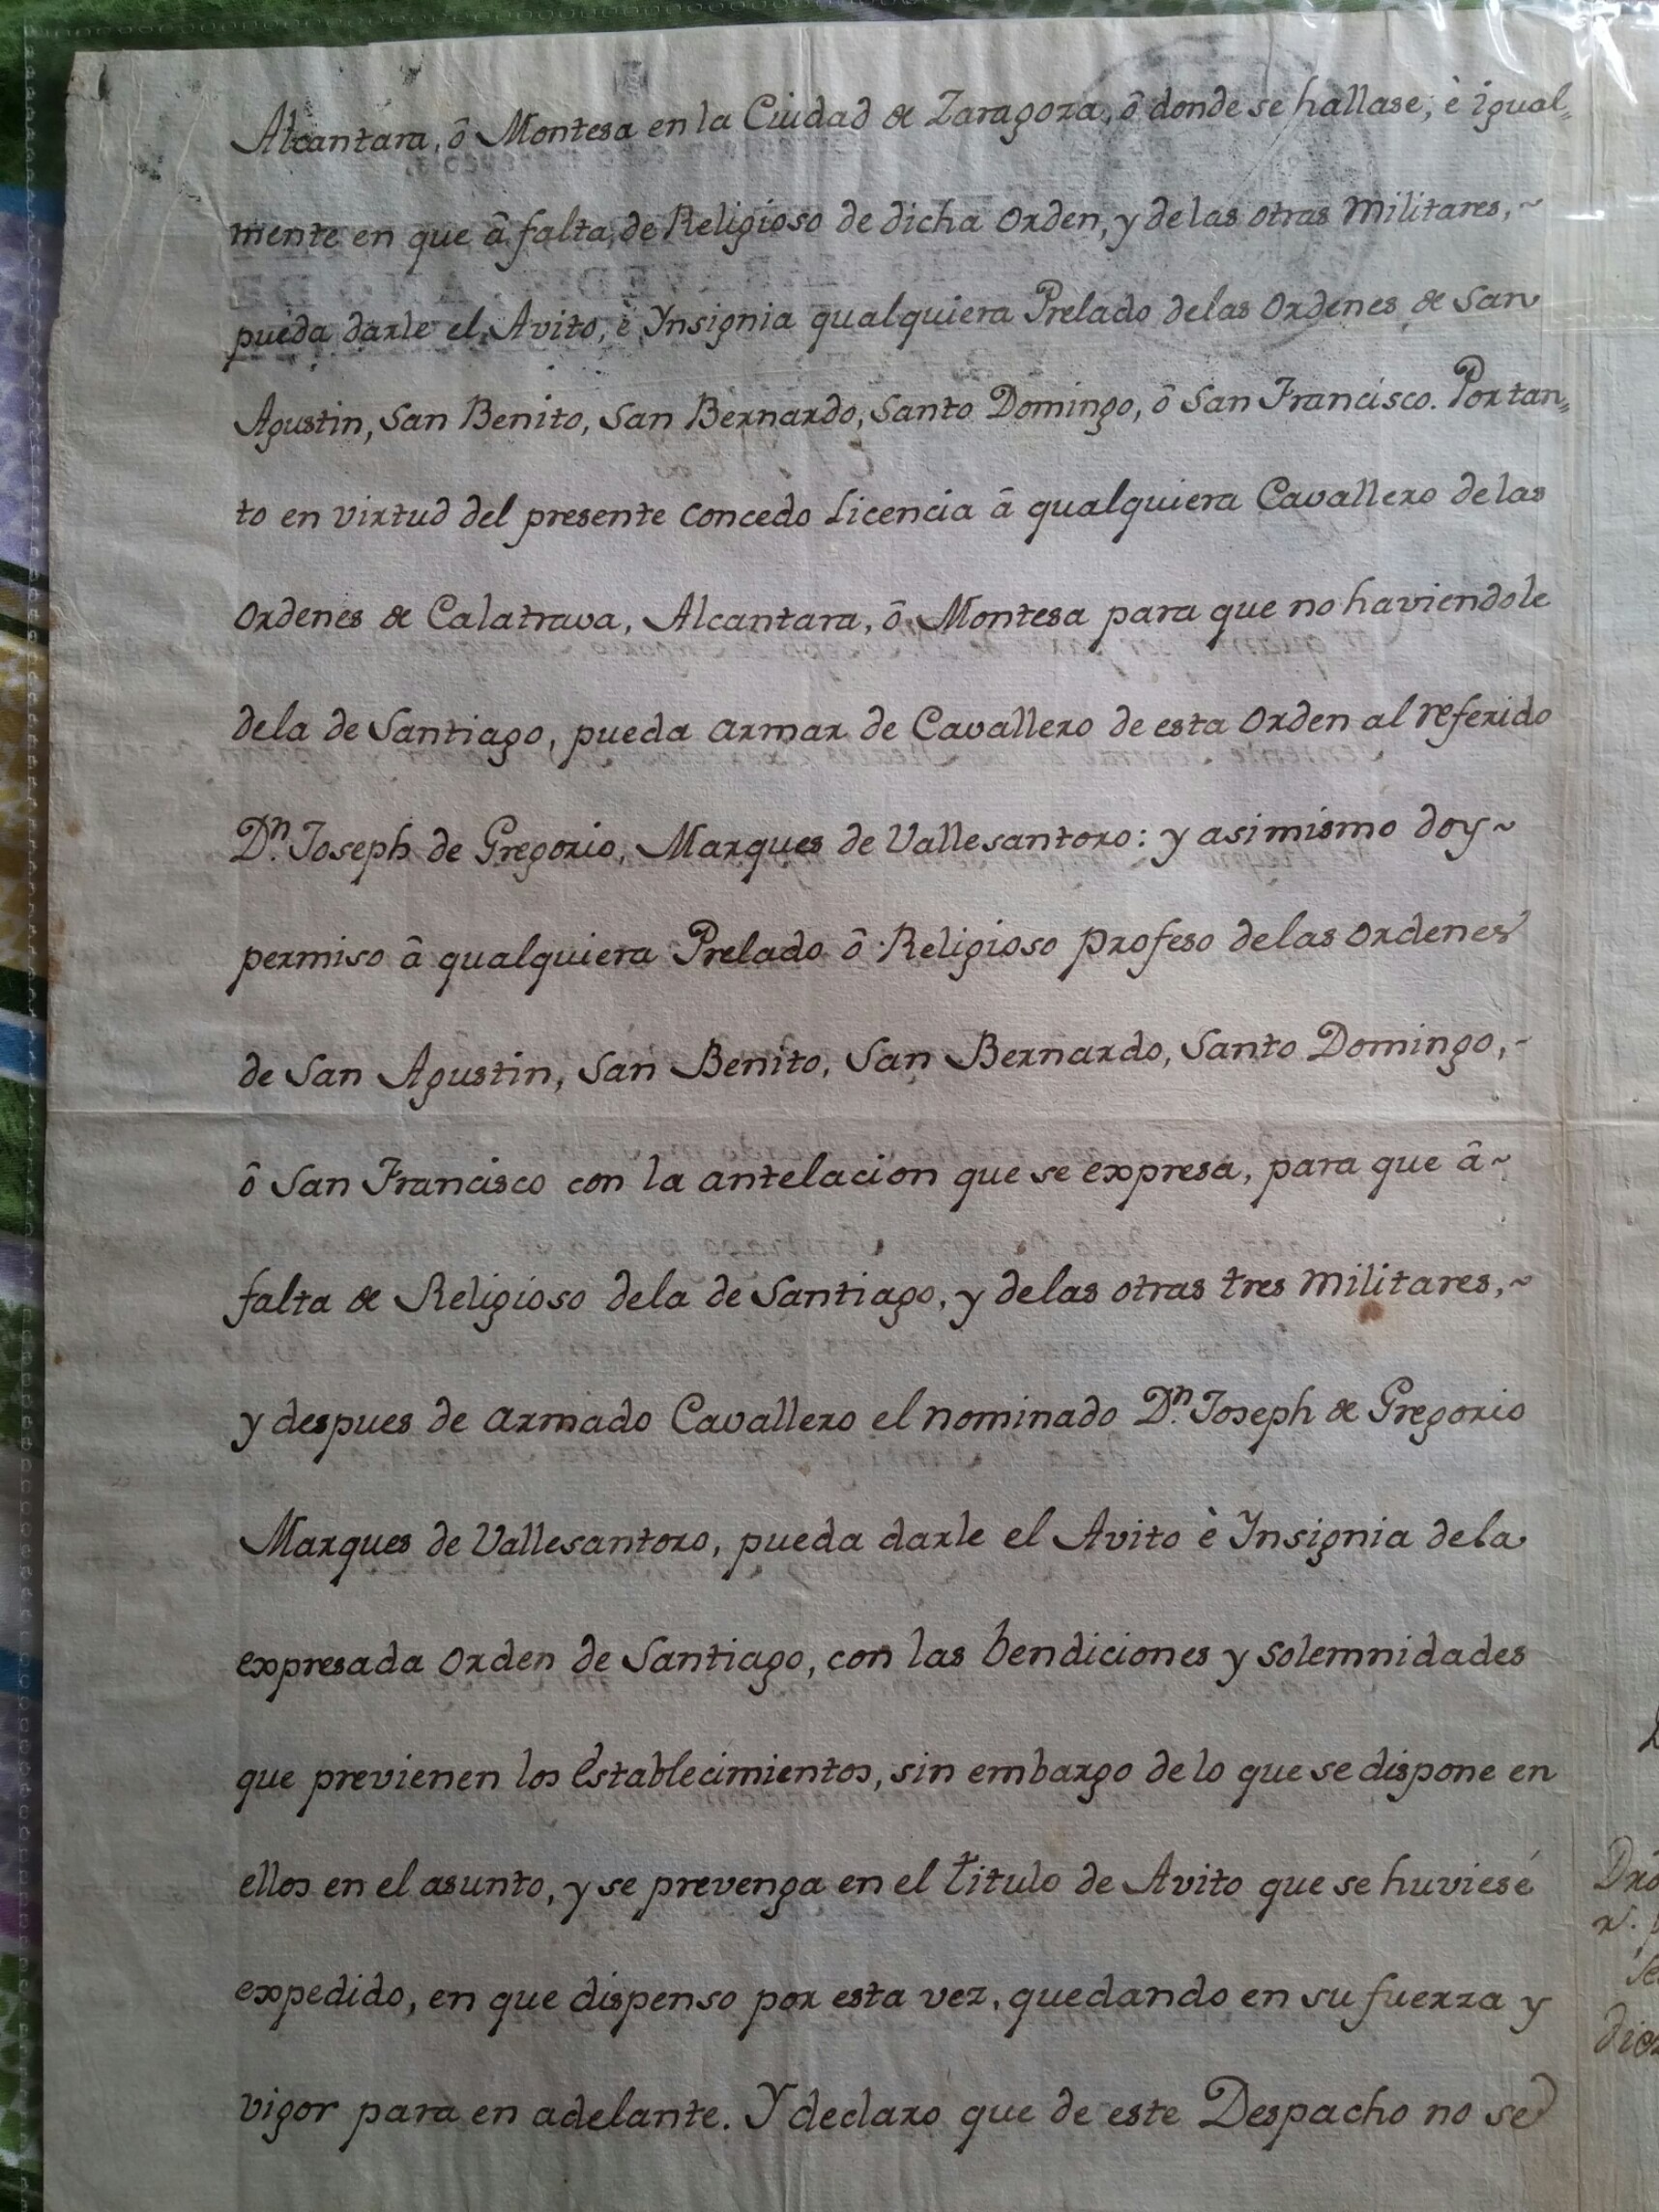 Alcantara, ô Montesa en la Ciudad de Zaragoza, ô donde se hallase, è igual=
mente en que â falta, de Religioso de dicha Orden, y delas otras Militares, ~
pueda darle el Avito, è Ynsignia qualquiera Prelado delas Ordenes de San
Agustin, San Benito, San Bernardo, Santo Domingo, ô San Francisco. Por tan=
to en virtud del presente concedo Licencia â qualquiera Cavallero delas
Ordenes de Calatrava, Alcantara, ô Montesa para que no haviendole
dela de Santiago, pueda armar de Cavallero de esta Orden al referido
Dn. Joseph de Gregorio, Marques de Vallesantoro: y asimismo doy ~
permiso â qualquiera Prelado ô Religioso Profeso delas Ordenes
de San Agustin, San Benito, San Bernardo, Santo Domingo, -
ô San Francisco con la antelacion que se expresa, para que â ~
falta de Religioso dela de Santiago, y delas otras tres Militares, ~
y despues de armado Cavallero el nominado Dn. Joseph de Gregorio
Marques de Vallesantoro, pueda darle el Avito è Ynsignia dela
expresada Orden de Santiago, con las bendiciones y solemnidades
que previenen los Establecimientos, sin embargo de lo que se dispone en
ellos en el asunto, y se prevenga en el titulo de Avito que se huviese
expedido, en que dispenso por esta vez, quedando en su fuerza y
vigor para en adelante. Y declaro que de este Despacho no se